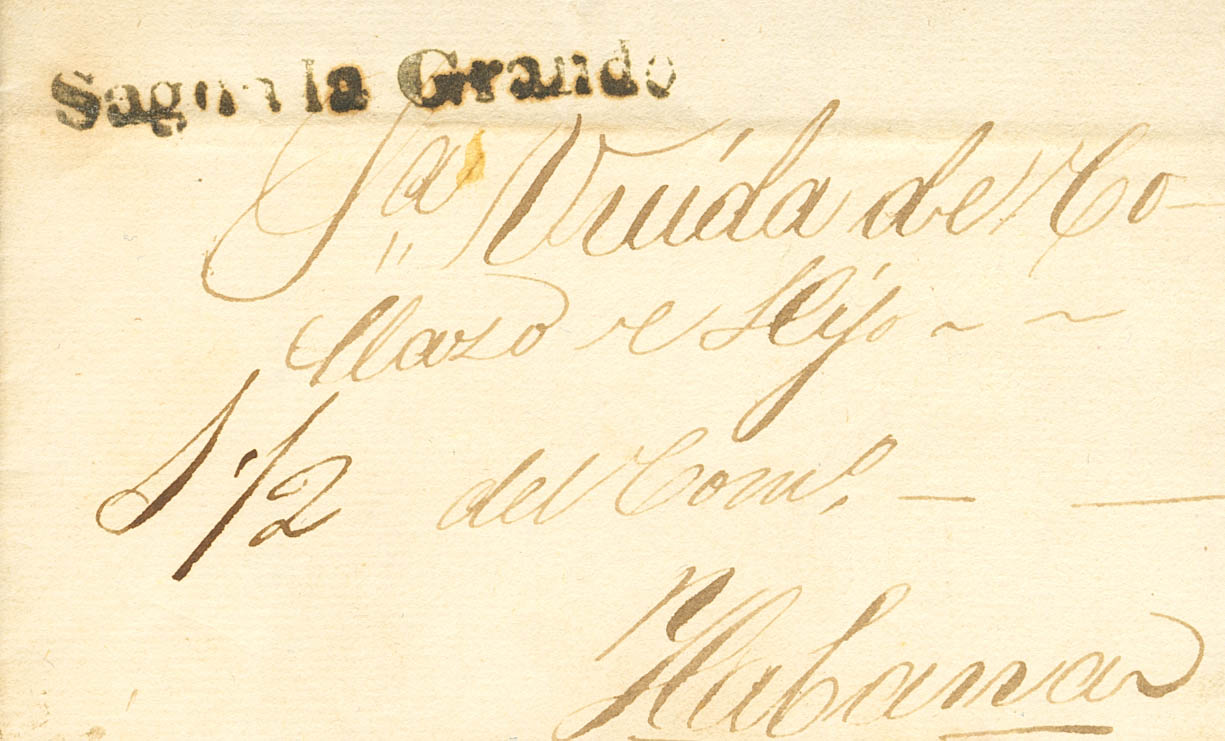 Sagua la Grande
Sra Viuda de Co-
llazo e Hijo
1/2
del Como.
Habana